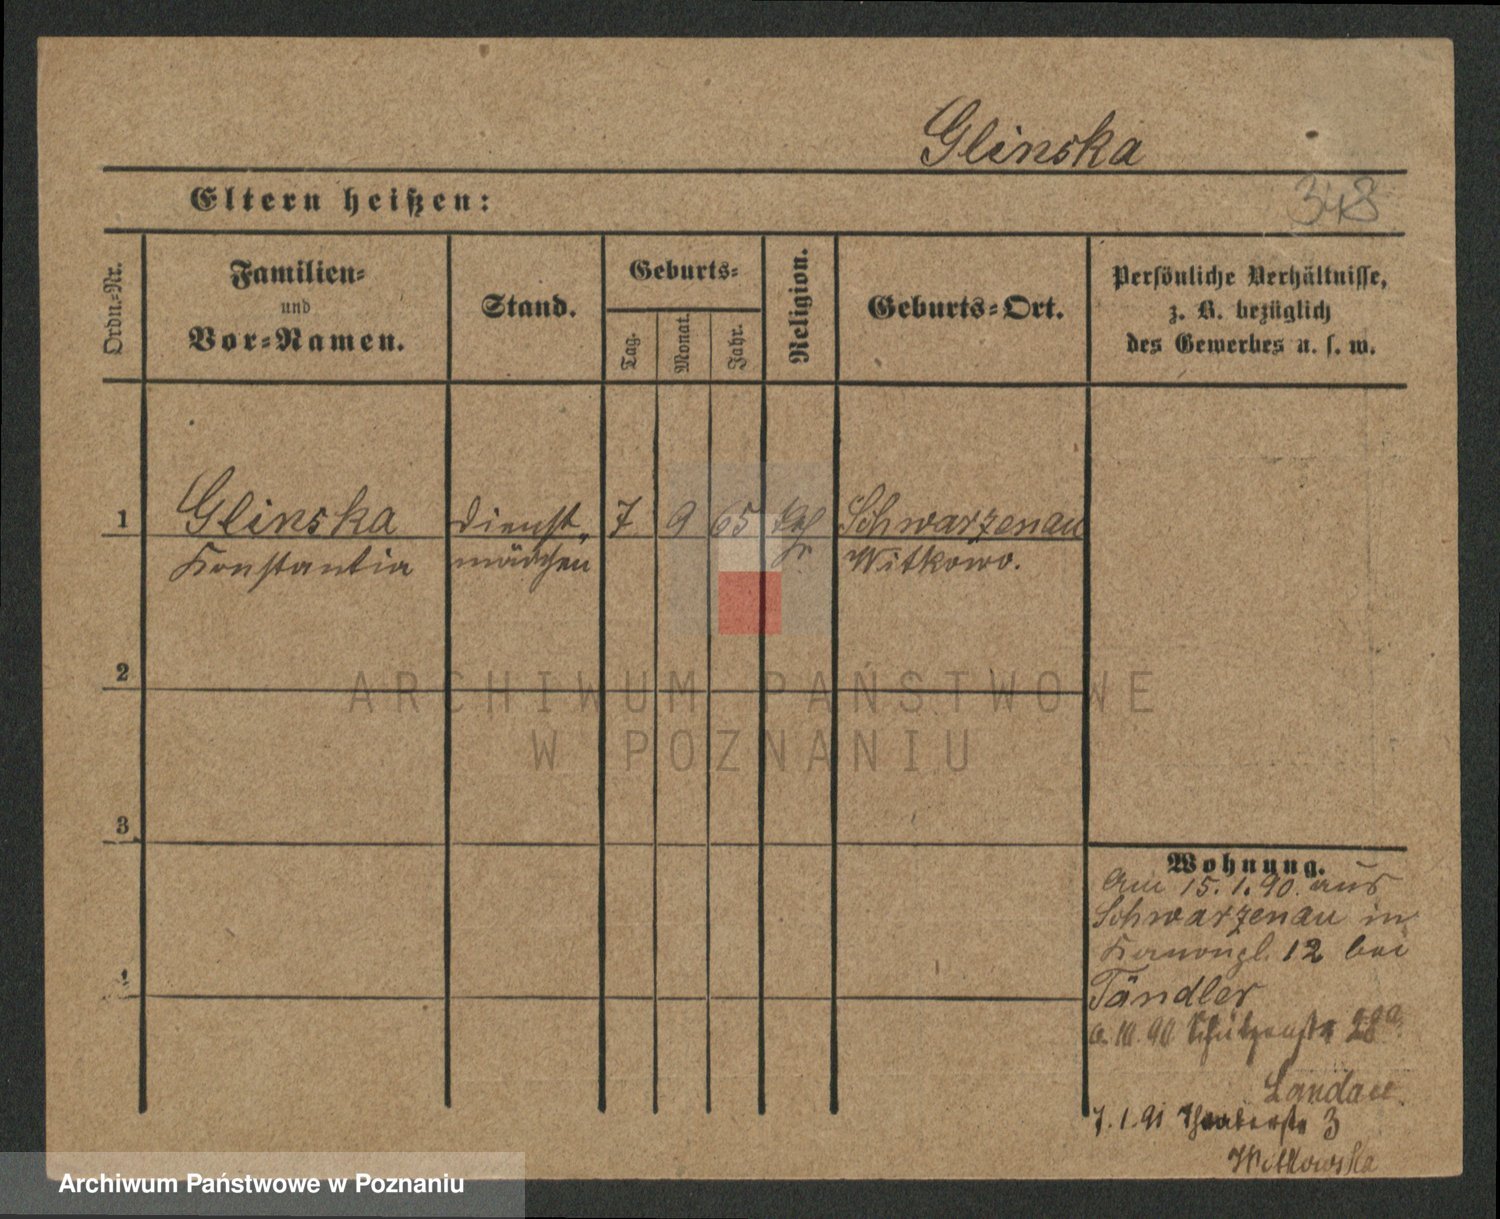 Glinska
348
Eltern heißen:
Ordn.-Nr.
Familien-
und
Vor-Namen.
Stand.
Geburts-
Tag.
Monat.
Jahr.
Religion.
Geburts-Ort.
Persönliche Verhältnisse,
z. B. bezüglich
des Gewerbes u. s. w.
1 Glinska Dienst 7 9 65 Schwarzenau
Konstantia mädchen Witkowo.
2
ARCHIWUM PAŃSTWOWE
W POZNANIU
3
Wohnung.
Am 15.1.90. aus
Schwarzenau in
Kanonpl. 12 bei
Tändler
10 90 Schützenstr 28a
Landau
7.1.91 Theaterstr 3
Witkowska
4
Archiwum Państwowe w Poznaniu